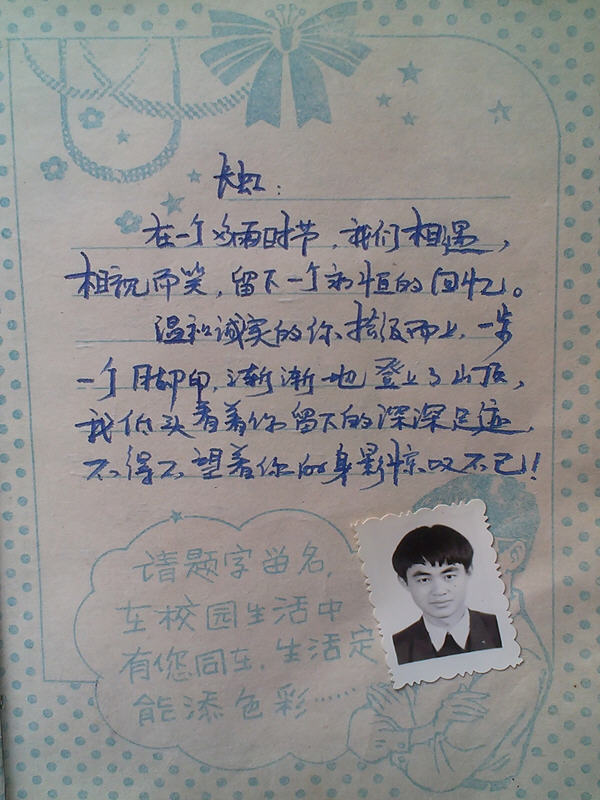 长虹：
在一个多雨时节，我们相遇，
相视而笑，留下一个永恒的回忆。
温和诚实的你拾级而上，一步
一个脚印，渐渐地登上了山顶，
我低头看着你留下的深深足迹
不得不望着你的身影惊叹不已！
请题字留名，
在校园生活中
有您同在，生活定
能添色彩……